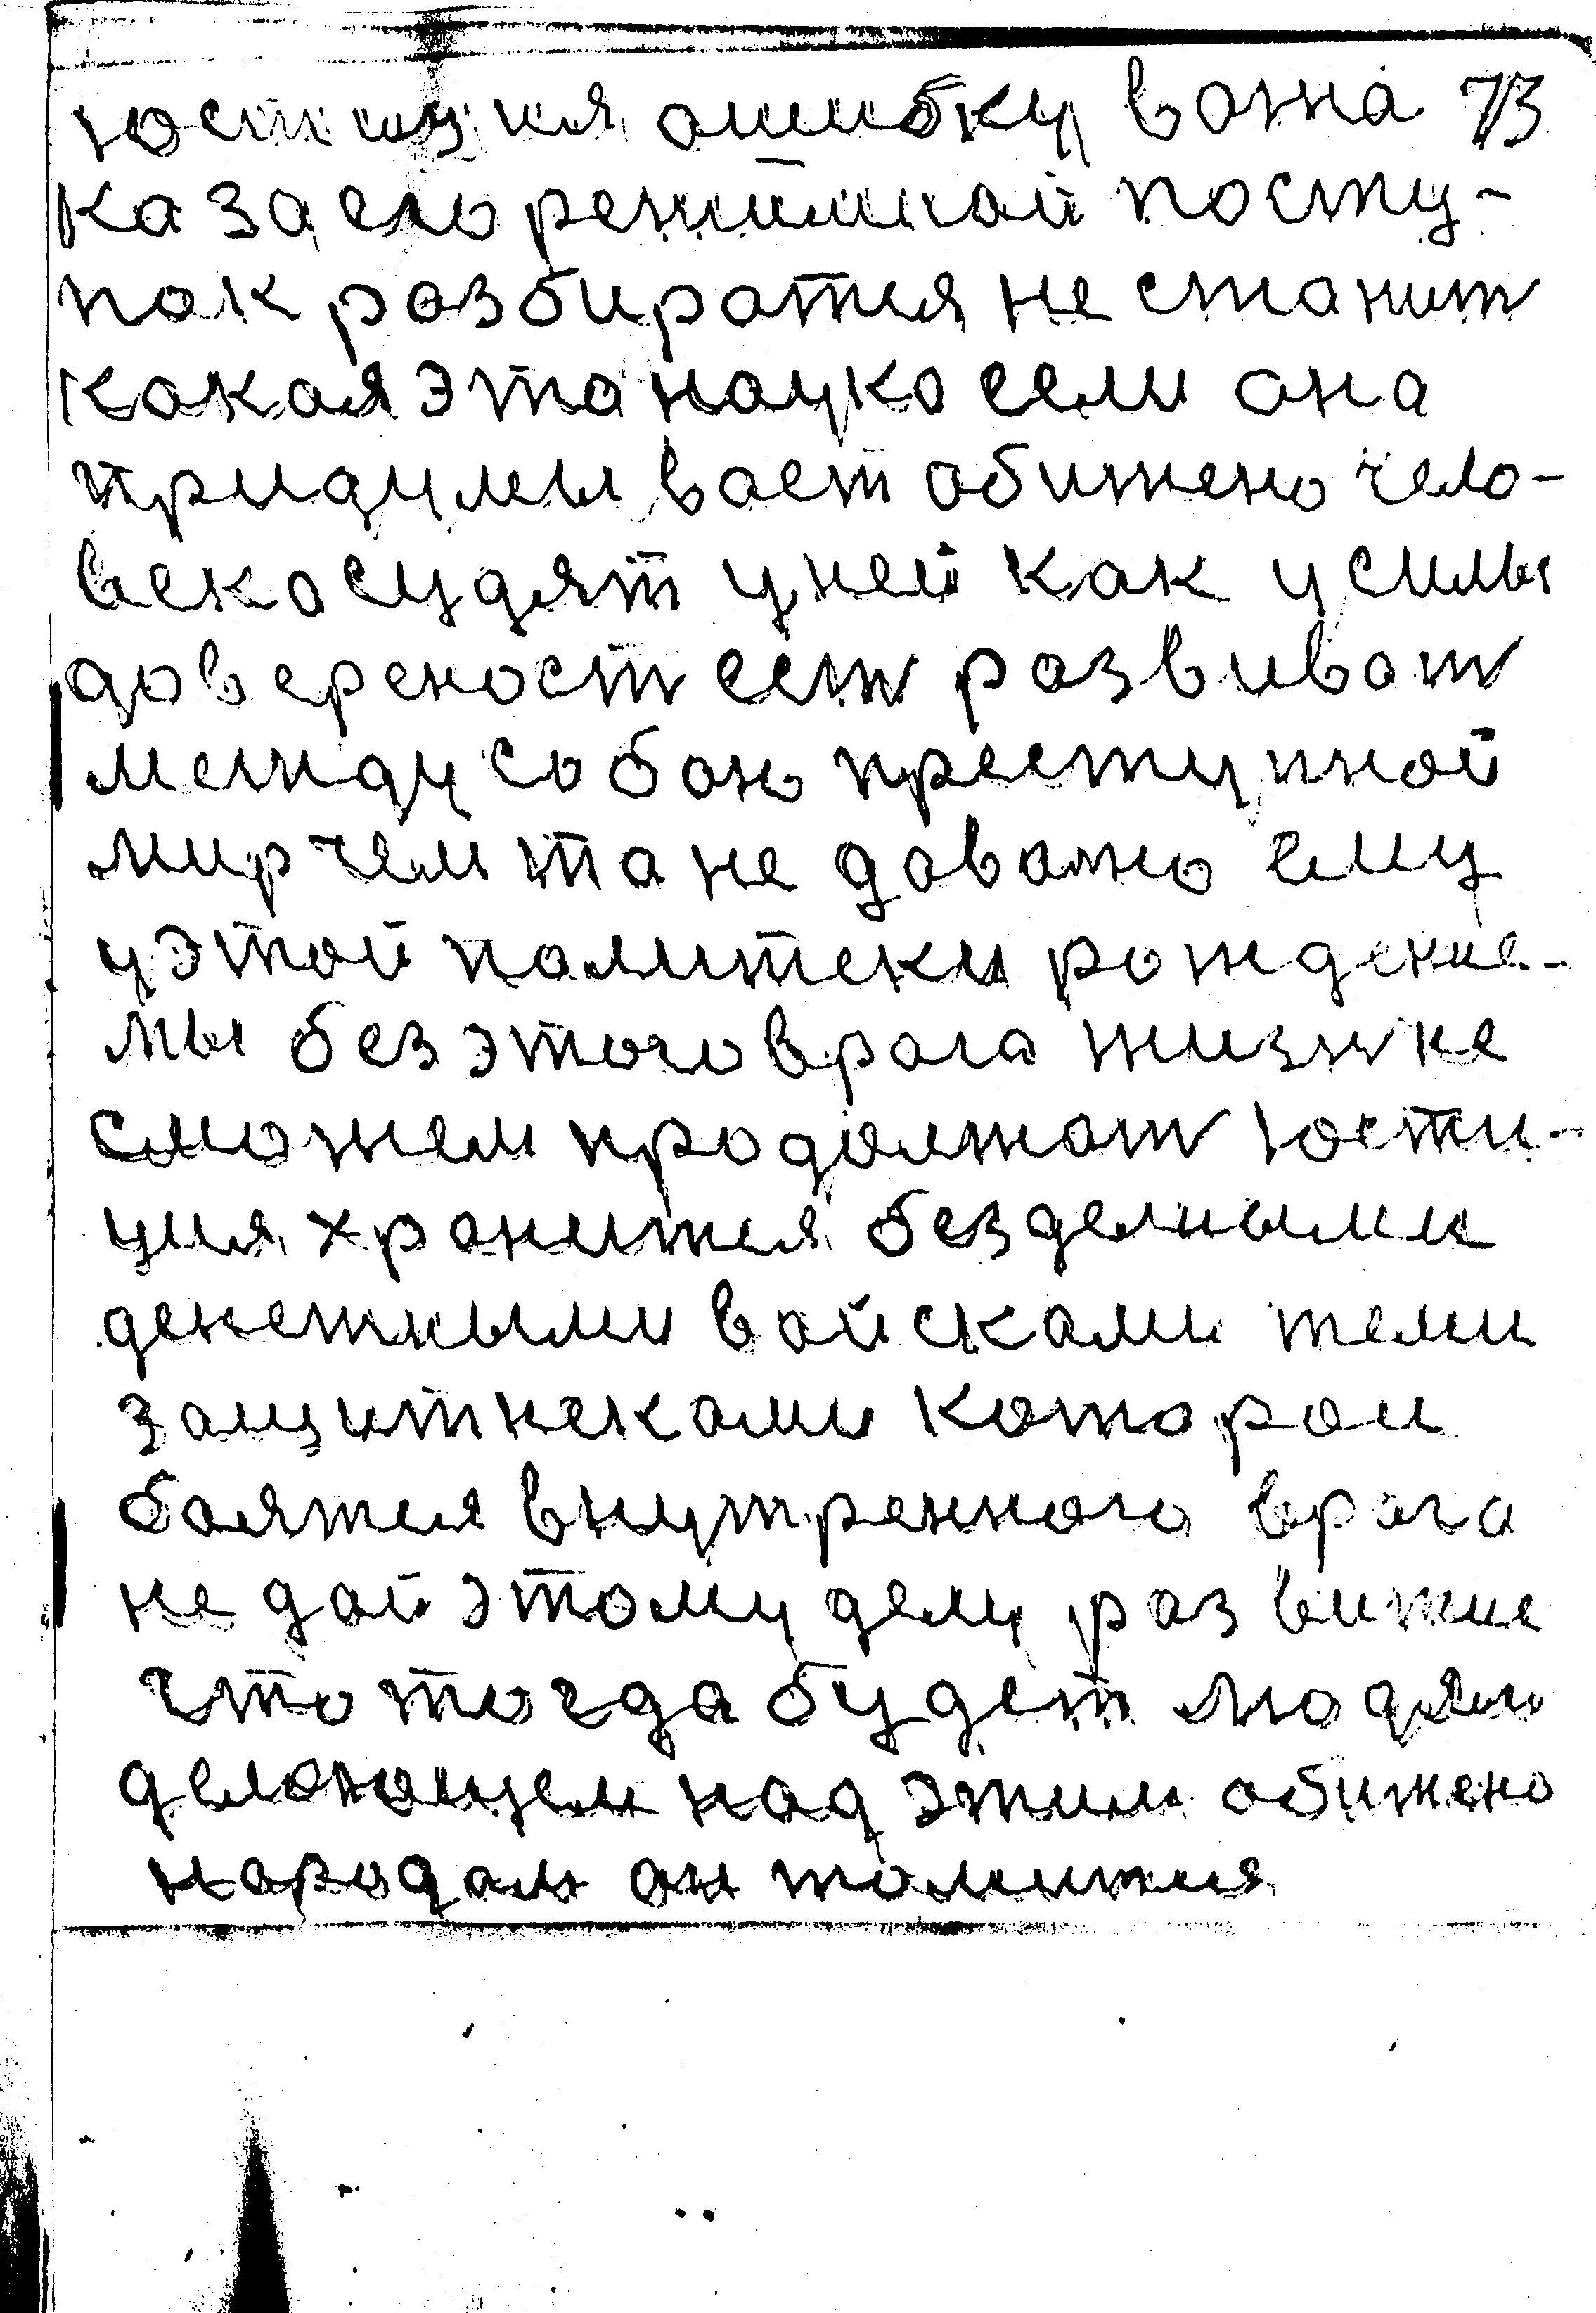 юстиция ошибку вона 73
ка за его решитлной посту-
пок разбиратся не станит
какая эта наука если она
придумывает обижено чело-
века судят у ней как у силы
довереност ест развиват
между собою преступной
мир чем та не давано ему
у этой политеки рождение
мы без этого врага жизн не
сможем продолжат юсти-
ция хранится безделными
денежными войсками теми
защитнеками которои
боятся внутренного врага
не дай этому делу развитие
что тогда будет людям
делающем над этим обижено
народам он толится